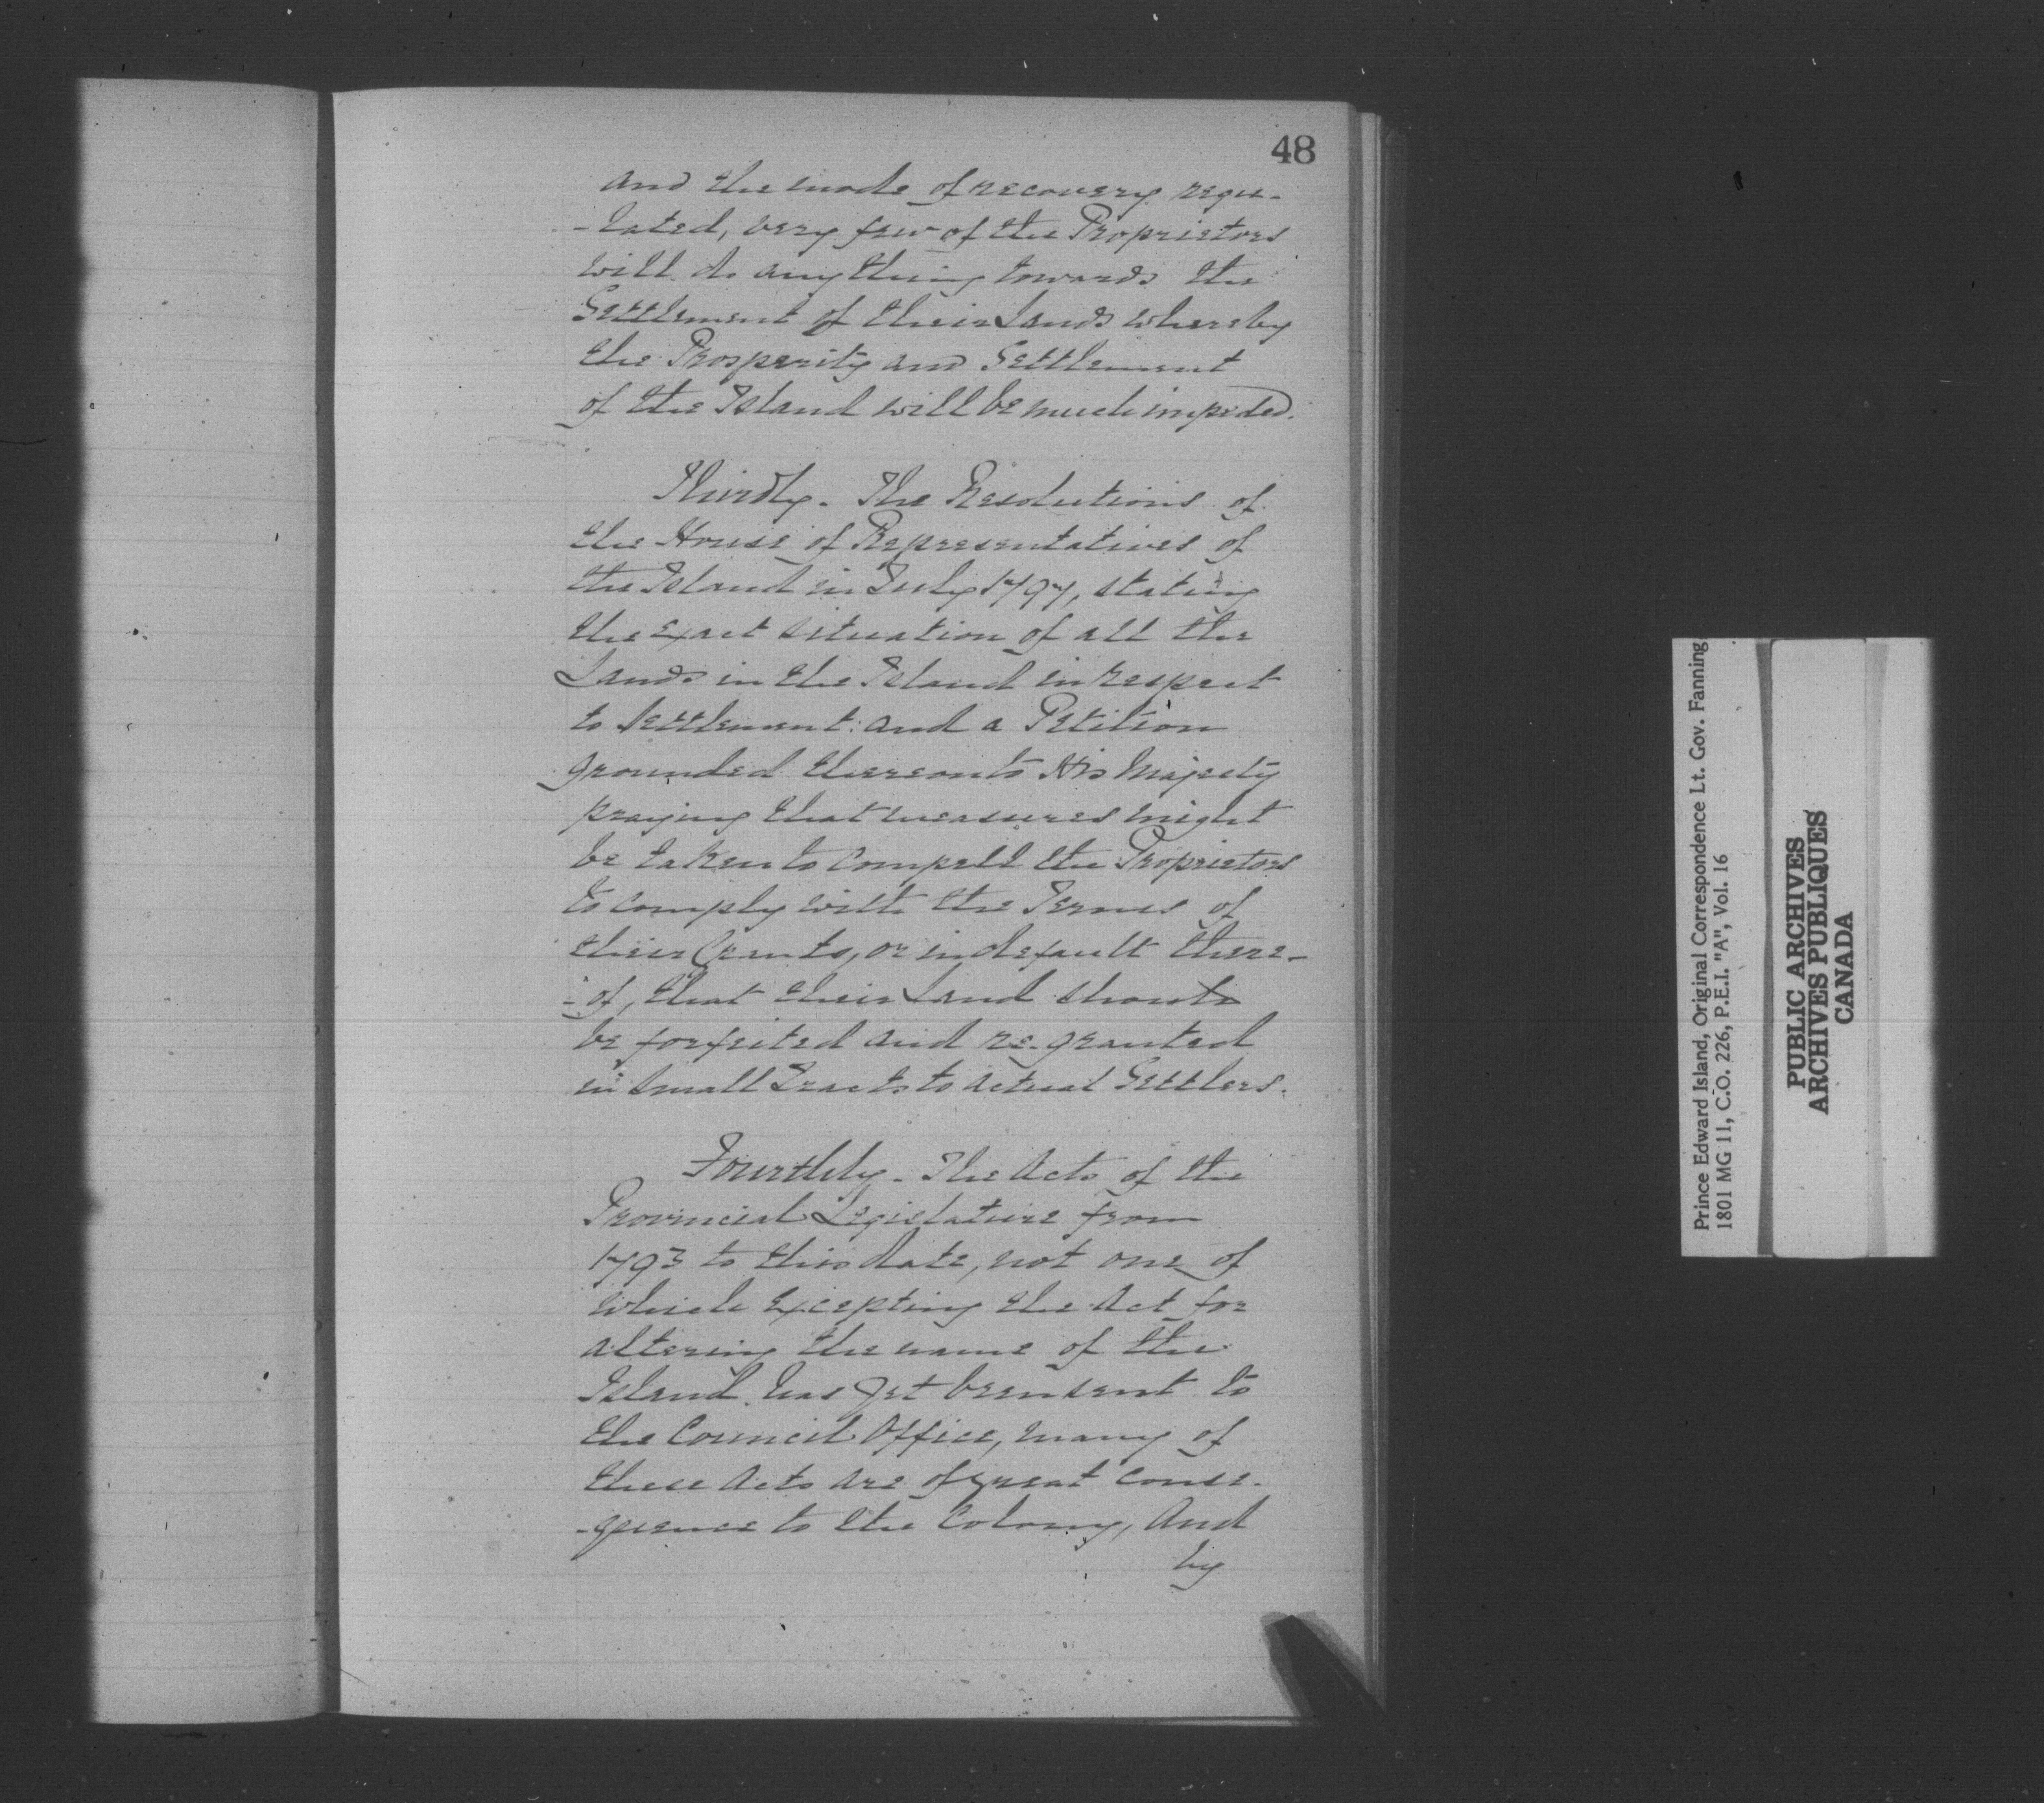 48
and the mode of recovery regu-
-lated, very few of the Proprietors
will do anything towards the
Settlement of their Lands whereby
the Prosperity and Settlement
of the Island will be much impeded.
Thirdly. The Resolutions of
the House of Representatives of
the Island in July 1797, stating
the exact situation of all the
Lands in the Island in respect
to settlement: and a Petition
grounded thereon to His Majesty
praying that measures might
be taken to compell the Proprietors
to comply with the Terms of
their Grants, or in default there-
-of, that their Land should
be forfeited and re-granted
in small Tracts to actual Settlers.
Fourthly. The Acts of the
Provincial Legislature from
1793 to this date, not one of
which excepting the Act for
altering the name of the
Island has yet been sent to
the Council Office, many of
these Acts are of great conse-
-quence to the Colony, and
by
Prince Edward Island, Original Correspondence Lt. Gov. Fanning
1801 MG 11, C.O. 226, P.E.I. "A", Vol. 16
PUBLIC ARCHIVES
ARCHIVES PUBLIQUES
CANADA